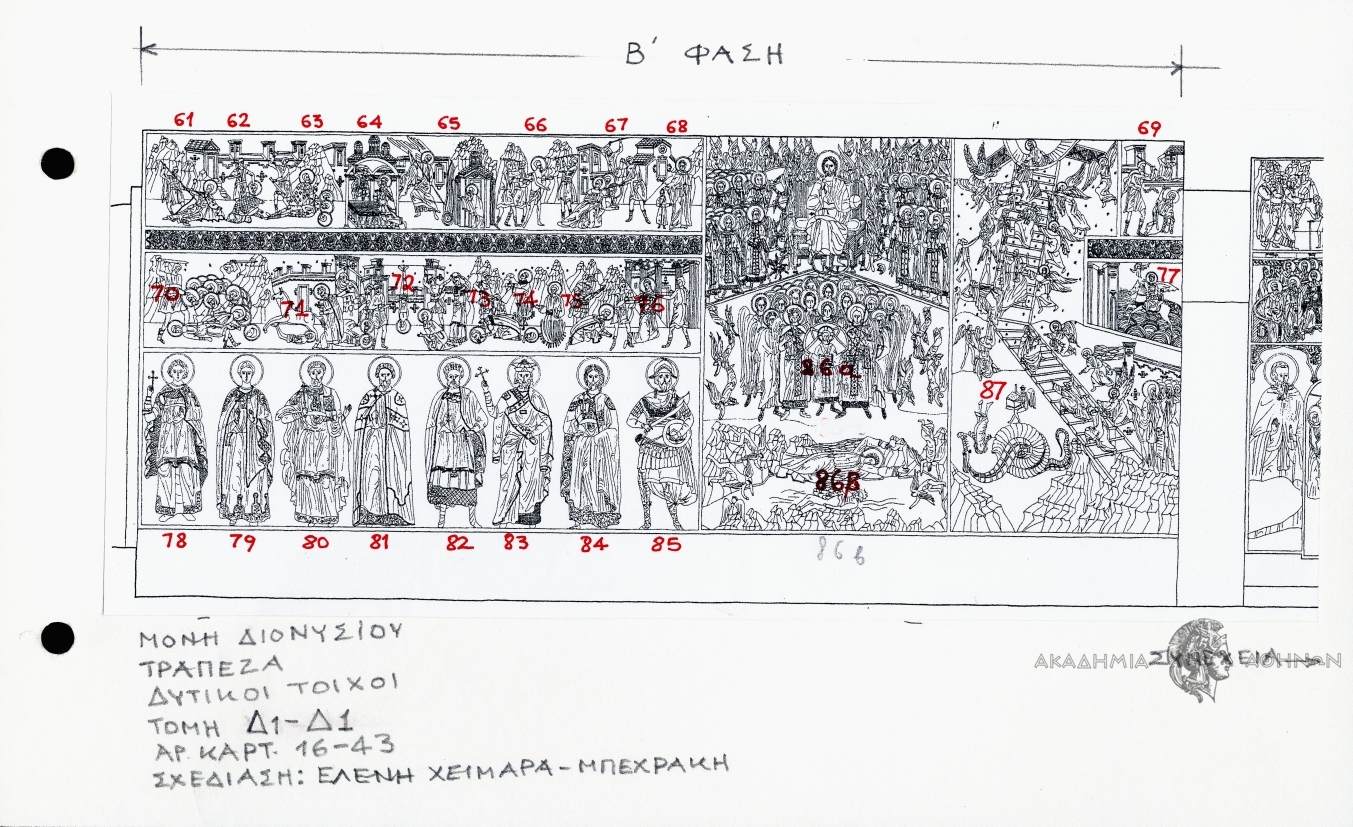 Β΄ ΦΑΣΗ
61 62 63 64 65 66 67 68 69
70 71 72 73 74 75 76 77
86α
87
86β
78 79 80 81 82 83 84 85
86 β
ΜΟΝΗ ΔΙΟΝΥΣΙΟΥ
ΤΡΑΠΕΖΑ
ΔΥΤΙΚΟΙ ΤΟΙΧΟΙ
ΤΟΜΗ Δ1-Δ1
ΑΡ. ΚΑΡΤ. 16-43
ΣΧΕΔΙΑΣΗ: ΕΛΕΝΗ ΧΕΙΜΑΡΑ-ΜΠΕΧΡΑΚΗ
ΣΥΝΕΧΕΙΑ
ΑΚΑΔΗΜΙΑ ΑΘΗΝΩΝ